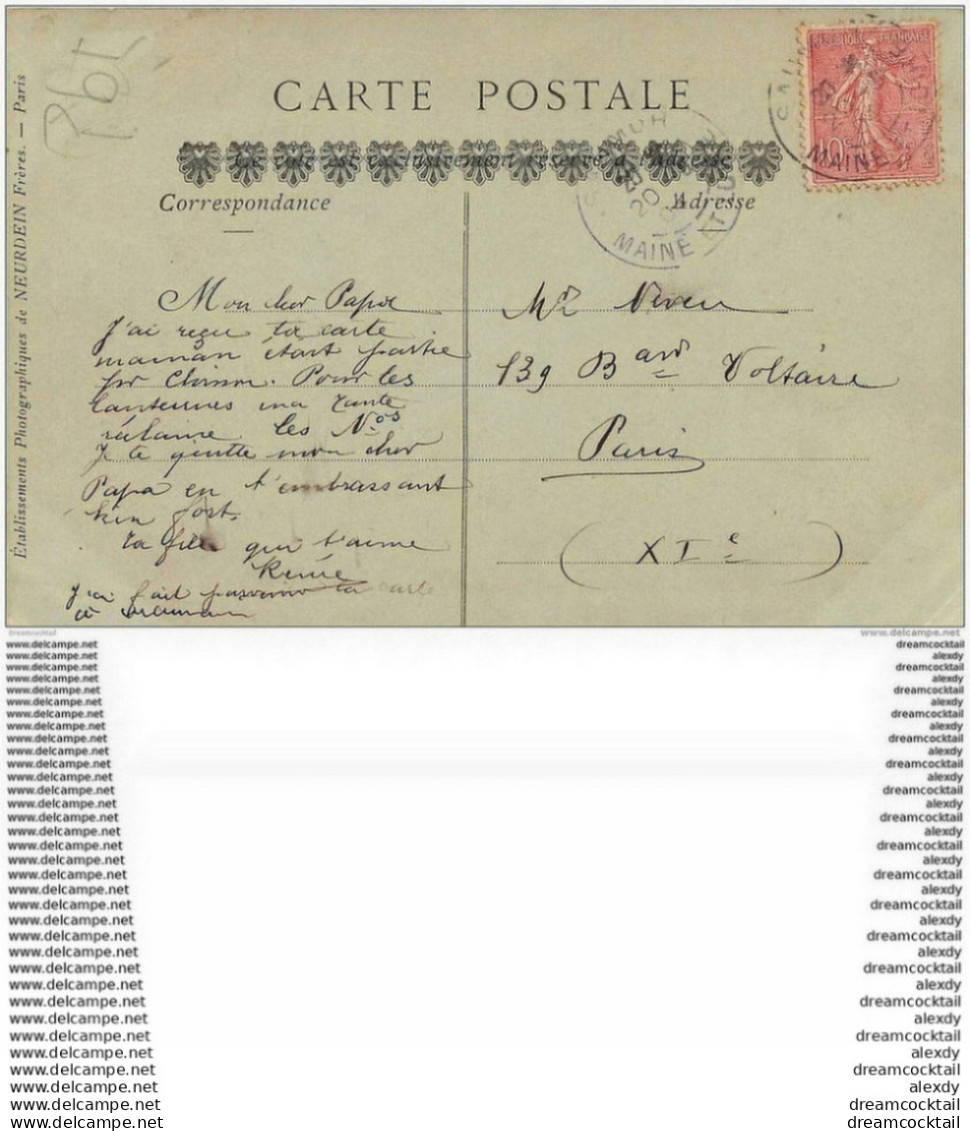 P61
CARTE POSTALE
Ce côté est exclusivement réservé à l'adresse
Correspondance
Adresse
Établissements Photographiques de NEURDEIN Frères. — Paris
RÉPUBLIQUE FRANÇAISE
10
SAUMUR
MAINE ET L
SAUMUR
20
MAINE ET L
Mon cher Papa
J'ai reçu ta carte
maman était partie
por Chinon. Pour les
lanternes ma tante
réclame les Nos
Je te quitte mon cher
Papa en t'embrassant
bien fort.
ta fille qui t'aime
Renée
J'ai fait parvenir ta carte
à maman
Mr Neveu
139 Bard Voltaire
Paris
(XIe)
Dreamcocktail
www.delcampe.net
www.delcampe.net dreamcocktail
www.delcampe.net alexdy
www.delcampe.net dreamcocktail
www.delcampe.net alexdy
www.delcampe.net dreamcocktail
www.delcampe.net alexdy
www.delcampe.net dreamcocktail
www.delcampe.net alexdy
www.delcampe.net dreamcocktail
www.delcampe.net alexdy
www.delcampe.net dreamcocktail
www.delcampe.net alexdy
www.delcampe.net dreamcocktail
www.delcampe.net alexdy
www.delcampe.net dreamcocktail
www.delcampe.net alexdy
www.delcampe.net dreamcocktail
www.delcampe.net alexdy
www.delcampe.net dreamcocktail
www.delcampe.net alexdy
www.delcampe.net dreamcocktail
www.delcampe.net alexdy
www.delcampe.net dreamcocktail
www.delcampe.net alexdy
www.delcampe.net dreamcocktail
www.delcampe.net alexdy
www.delcampe.net dreamcocktail
www.delcampe.net alexdy
www.delcampe.net dreamcocktail
www.delcampe.net alexdy
www.delcampe.net dreamcocktail
www.delcampe.net alexdy
www.delcampe.net dreamcocktail
www.delcampe.net dreamcocktail